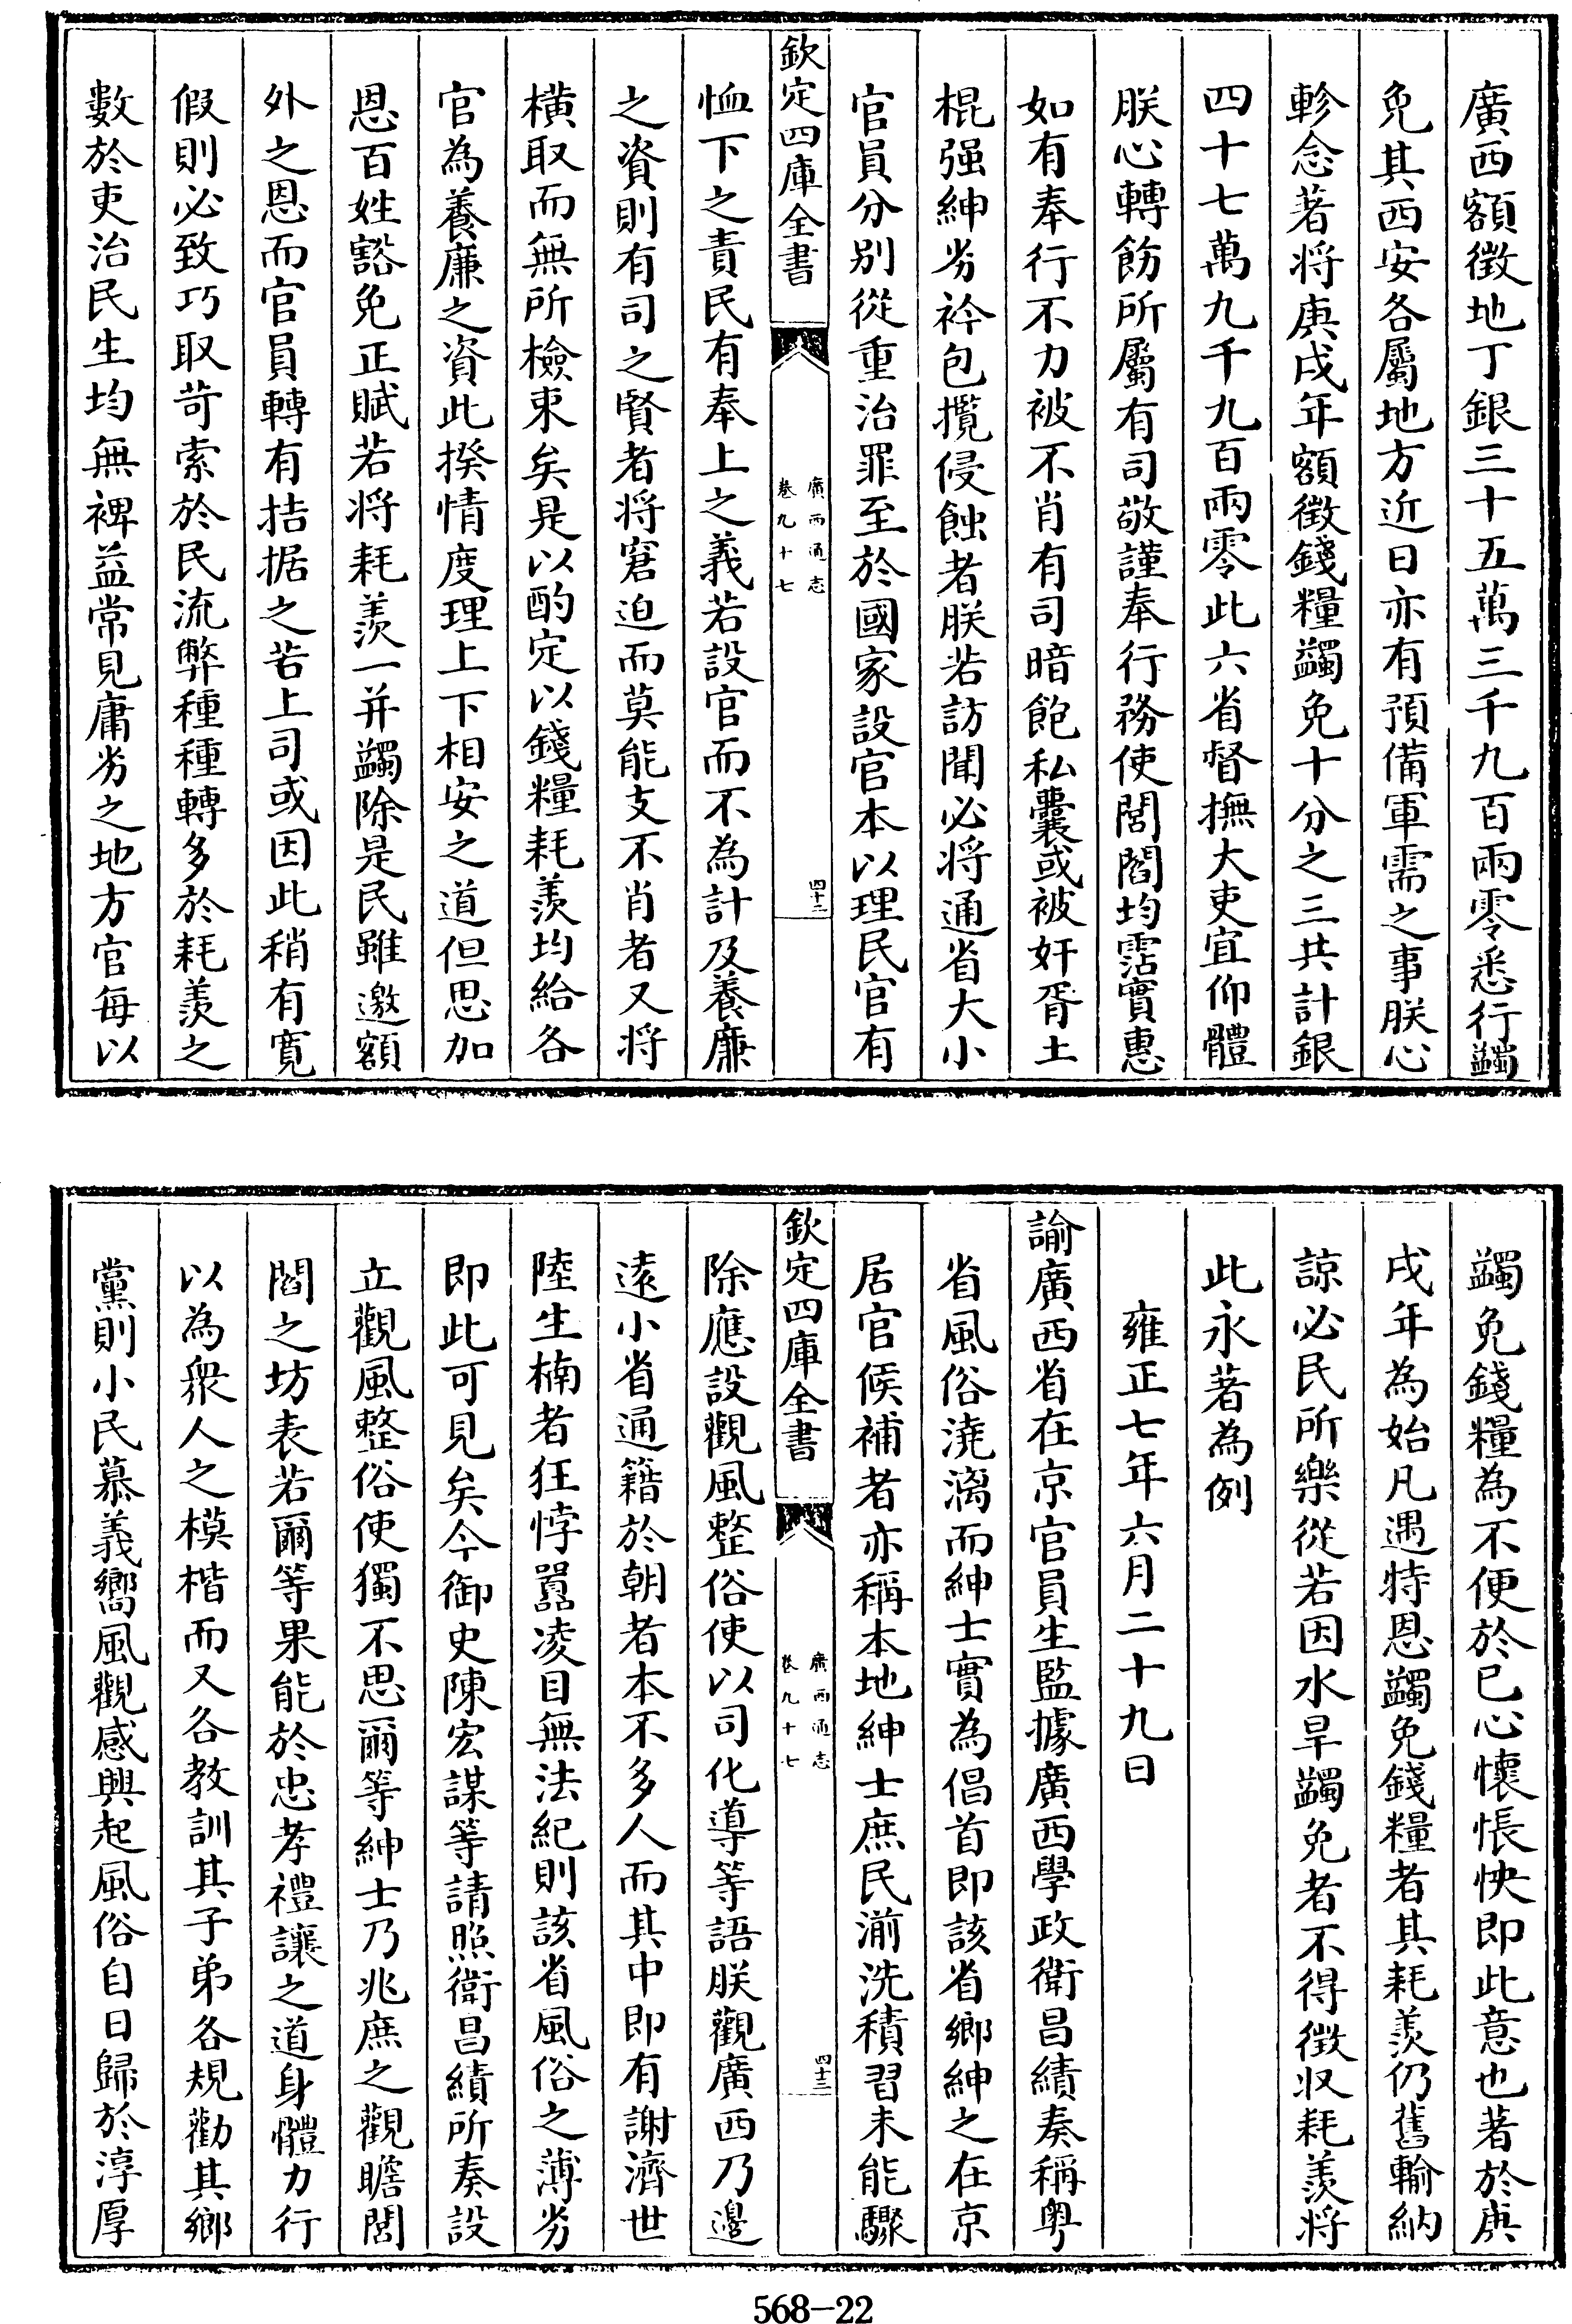 廣西額徵地丁銀三十五萬三千九百兩零悉行蠲
免其西安各屬地方近日亦有預備軍需之事朕心
軫念著將庚戌年額徵錢糧蠲免十分之三共計銀
四十七萬九千九百兩零此六省督撫大吏宜仰體
朕心轉飭所屬有司敬謹奉行務使閭閻均霑實惠
如有奉行不力被不肖有司暗飽私囊或被奸胥土
棍强紳劣衿包攬侵蝕者朕若訪聞必將通省大小
官員分别從重治罪至於國家設官本以理民官有
欽定四庫全書
廣西通志
卷九十七
四十三
恤下之責民有奉上之義若設官而不為計及養廉
之資則有司之賢者將窘迫而莫能支不肖者又將
橫取而無所檢束矣是以酌定以錢糧耗羨均給各
官為養廉之資此揆情度理上下相安之道但思加
恩百姓豁免正賦若將耗羨一并蠲除是民雖邀額
外之恩而官員轉有拮据之苦上司或因此稍有寛
假則必致巧取苛索於民流弊種種轉多於耗羨之
數於吏治民生均無裨益常見庸劣之地方官每以
蠲免錢糧為不便於已心懷悵怏即此意也著於庚
戌年為始凡遇特恩蠲免錢糧者其耗羨仍舊輸納
諒必民所樂從若因水旱蠲免者不得徵收耗羨將
此永著為例
雍正七年六月二十九日
諭廣西省在京官員生監據廣西學政衛昌績奏稱粤
省風俗澆漓而紳士實為倡首即該省鄉紳之在京
居官候補者亦稱本地紳士庶民湔洗積習未能驟
欽定四庫全書
廣西通志
卷九十七
四十三
除應設觀風整俗使以司化導等語朕觀廣西乃邊
遠小省通籍於朝者本不多人而其中即有謝濟世
陸生楠者狂悖囂凌目無法紀則該省風俗之薄劣
即此可見矣今御史陳宏謀等請照衛昌績所奏設
立觀風整俗使獨不思爾等紳士乃兆庶之觀瞻閭
閻之坊表若爾等果能於忠孝禮讓之道身體力行
以為衆人之模楷而又各教訓其子弟各規勸其鄉
黨則小民慕義嚮風觀感興起風俗自日歸於淳厚
568-22